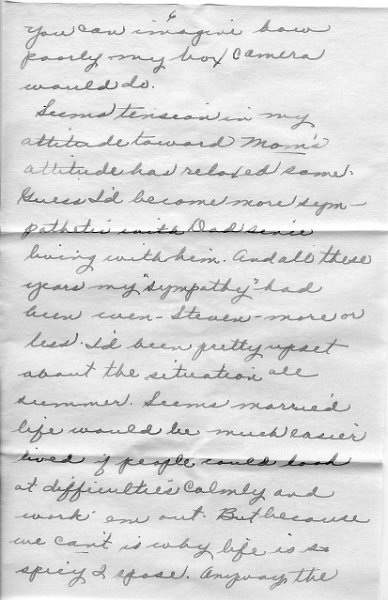 6
you can imagine how
poorly my box camera
would do.
Seems tension in my
attitude toward Mom's
attitude has relaxed some.
Guess I'd become more sym-
pathetic with Dad since
living with him. And all these
years my "sympathy" had
been even - Steven - more or
less. I'd been pretty upset
about the situation all
summer. Seems married
life would be much easier
lived if people could look
at difficulties calmly and
work 'em out. But because
we can't is why life is so
spicy I spose. Anyway, the